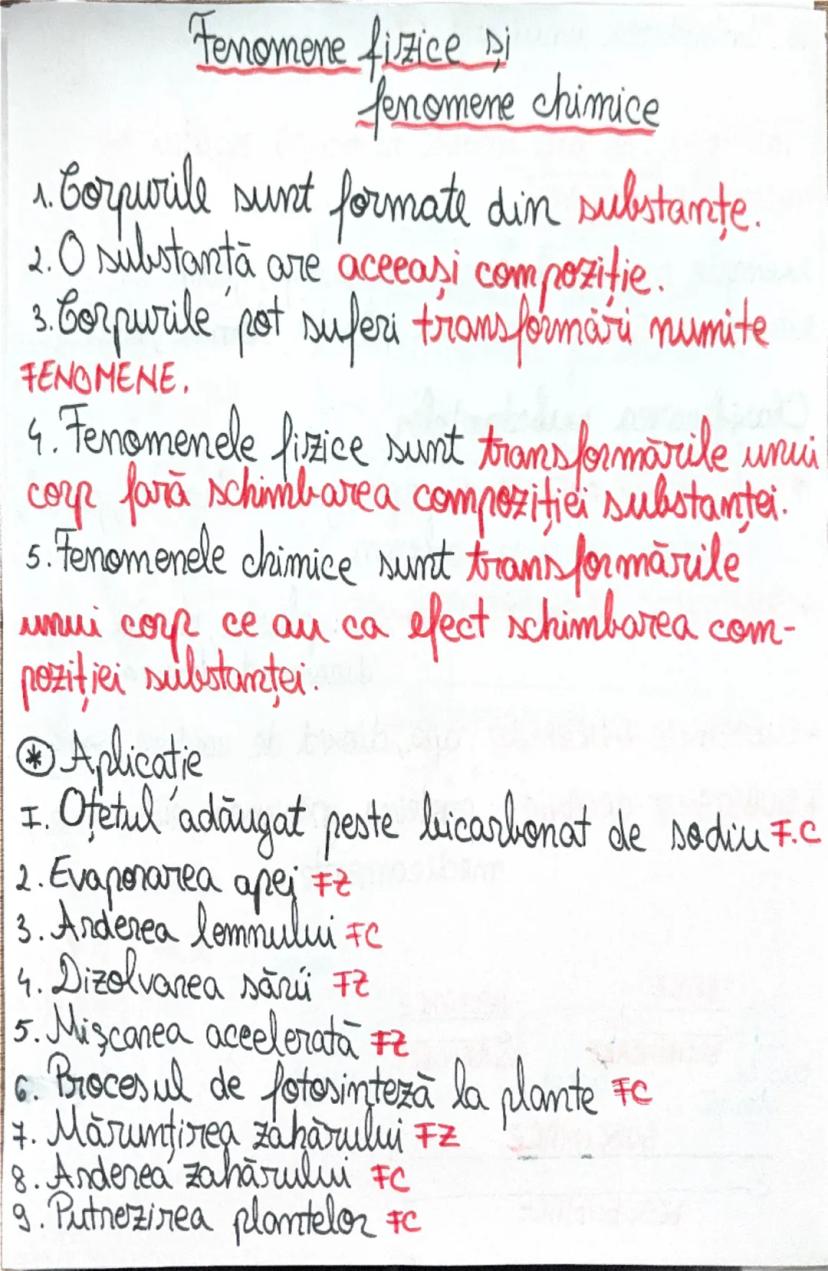 Fenomene fizice și
fenomene chimice
1. Corpurile sunt formate din substanțe.
2. O substantă are aceeași compoziție.
3. Corpurile pot suferi transformări numite
FENOMENE.
4. Fenomenele fizice sunt transformările unui
corp fară schimbarea compoziției substanței.
5. Fenomenele chimice sunt transformările
unui corp ce au ca efect schimbarea com-
poziției substanței.
* Aplicație
1. Oțetul adăugat peste bicarbonat de sodiu F.C
2. Evaporarea apei FZ
3. Arderea lemnului FC
4. Dizolvarea sării FZ
5. Mișcarea accelerată FZ
6. Procesul de fotosinteză la plante FC
7. Mărunțirea zahărului FZ
8. Arderea zahărului FC
9. Putrezirea plantelor FC